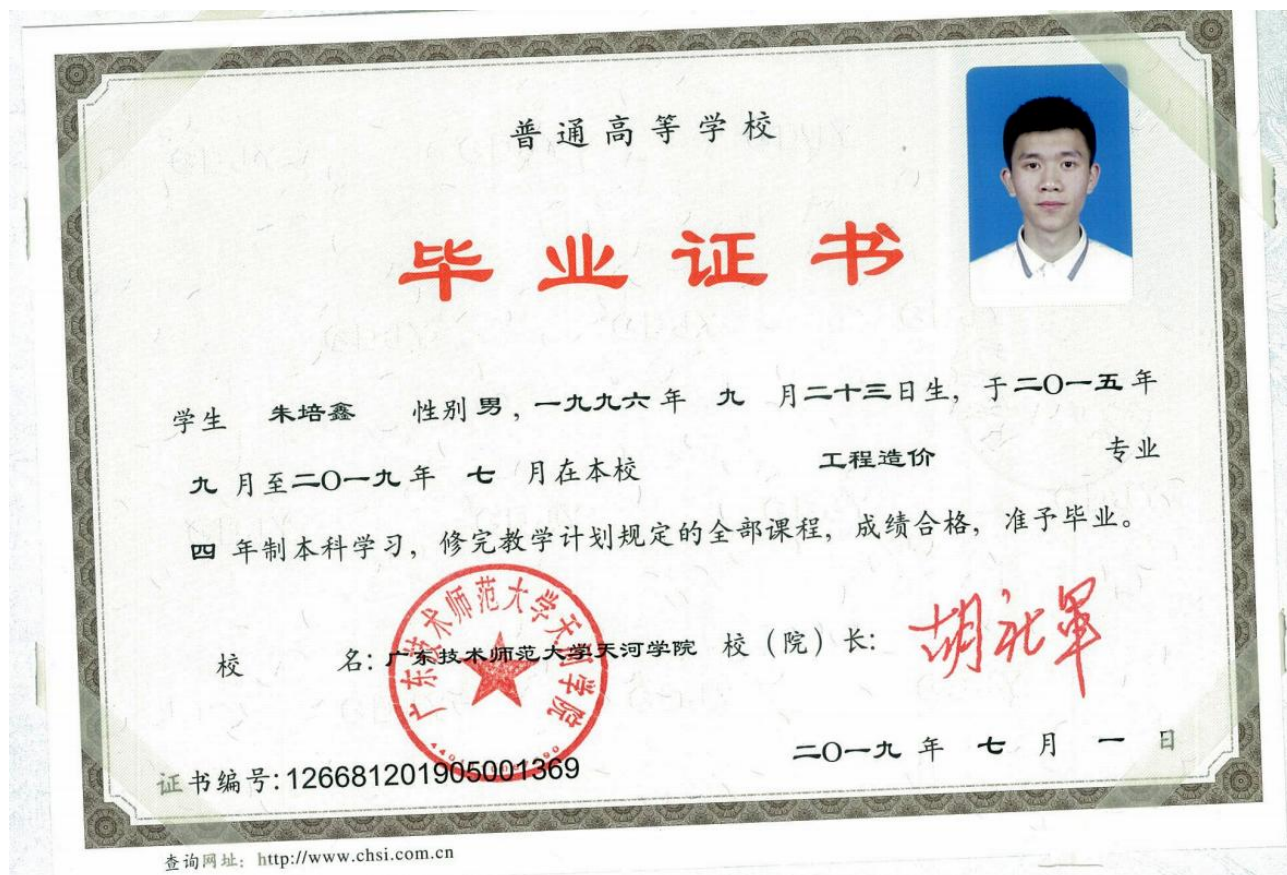 普通高等学校
毕业证书
学生 朱培鑫 性别男，一九九六年 九 月二十三日生，于二〇一五年
九 月至二〇一九年 七 月在本校 工程造价 专业
四 年制本科学习，修完教学计划规定的全部课程，成绩合格，准予毕业。
广东技术师范大学天河学院
校 名：广东技术师范大学天河学院 校（院）长：
二〇一九 年 七 月 一 日
证书编号：126681201905001369
查询网址：http://www.chsi.com.cn